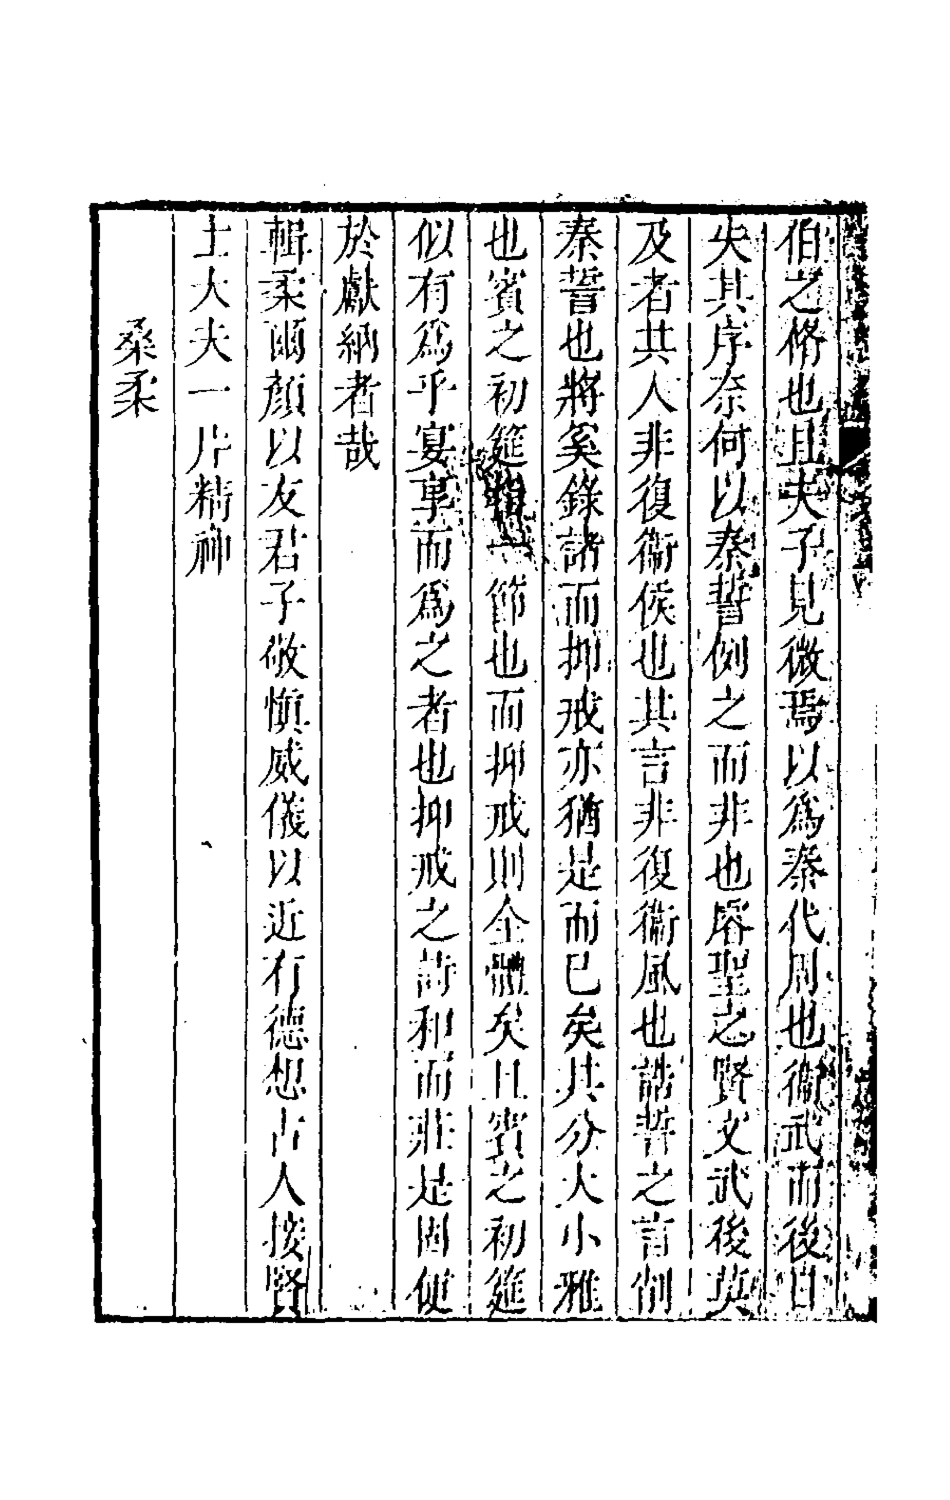 伯之脩也且夫子見微焉以爲秦代周也衞武而後日
失其序奈何以秦誓例之而非也睿聖之賢文武後莫
及者其人非復衞侯也其言非復衞風也誥誓之言削
秦誓也將奚錄諸而抑戒亦猶是而已矣其分大小雅
也賓之初筵指一節也而抑戒則全體矣且賓之初筵
似有爲乎宴事而爲之者也抑戒之詩和而莊是固便
於獻納者哉
輯柔爾顏以友君子敬愼威儀以近有德想古人接賢
士大夫一片精神
桑柔